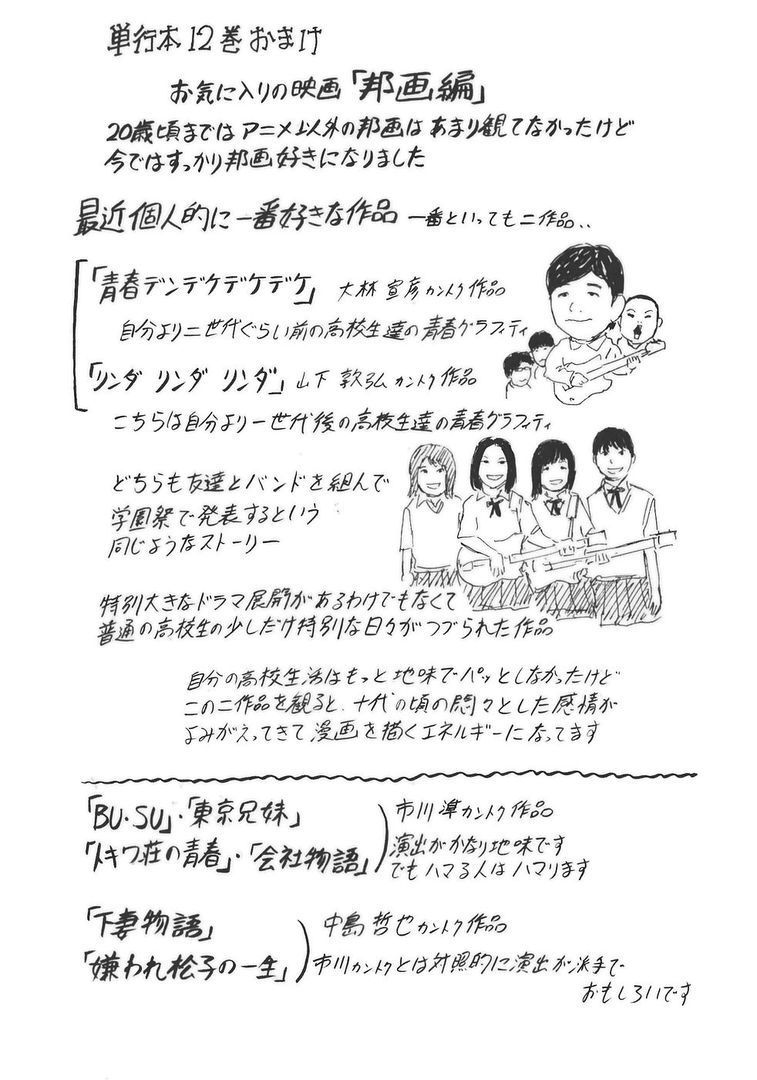 単行本12巻おまけ
お気に入りの映画「邦画編」
20歳頃まではアニメ以外の邦画はあまり観てなかったけど
今ではすっかり邦画好きになりました
最近個人的に一番好きな作品 一番といっても二作品..
「青春デンデケデケデケ」 大林宣彦カントク作品
自分より二世代ぐらい前の高校生達の青春グラフィティ
「リンダ リンダ リンダ」 山下敦弘カントク作品
こちらは自分より一世代後の高校生達の青春グラフィティ
どちらも友達とバンドを組んで
学園祭で発表するという
同じようなストーリー
特別大きなドラマ展開があるわけでもなくて
普通の高校生の少しだけ特別な日々がつづられた作品
自分の高校生活はもっと地味でパッとしなかったけど
この二作品を観ると、十代の頃の悶々とした感情が
よみがえってきて漫画を描くエネルギーになってます
「BU・SU」・「東京兄妹」
「トキワ荘の青春」・「会社物語」
市川準カントク作品
演出がかなり地味です
でもハマる人はハマります
「下妻物語」
「嫌われ松子の一生」
中島哲也カントク作品
市川カントクとは対照的に演出が派手で
おもしろいです